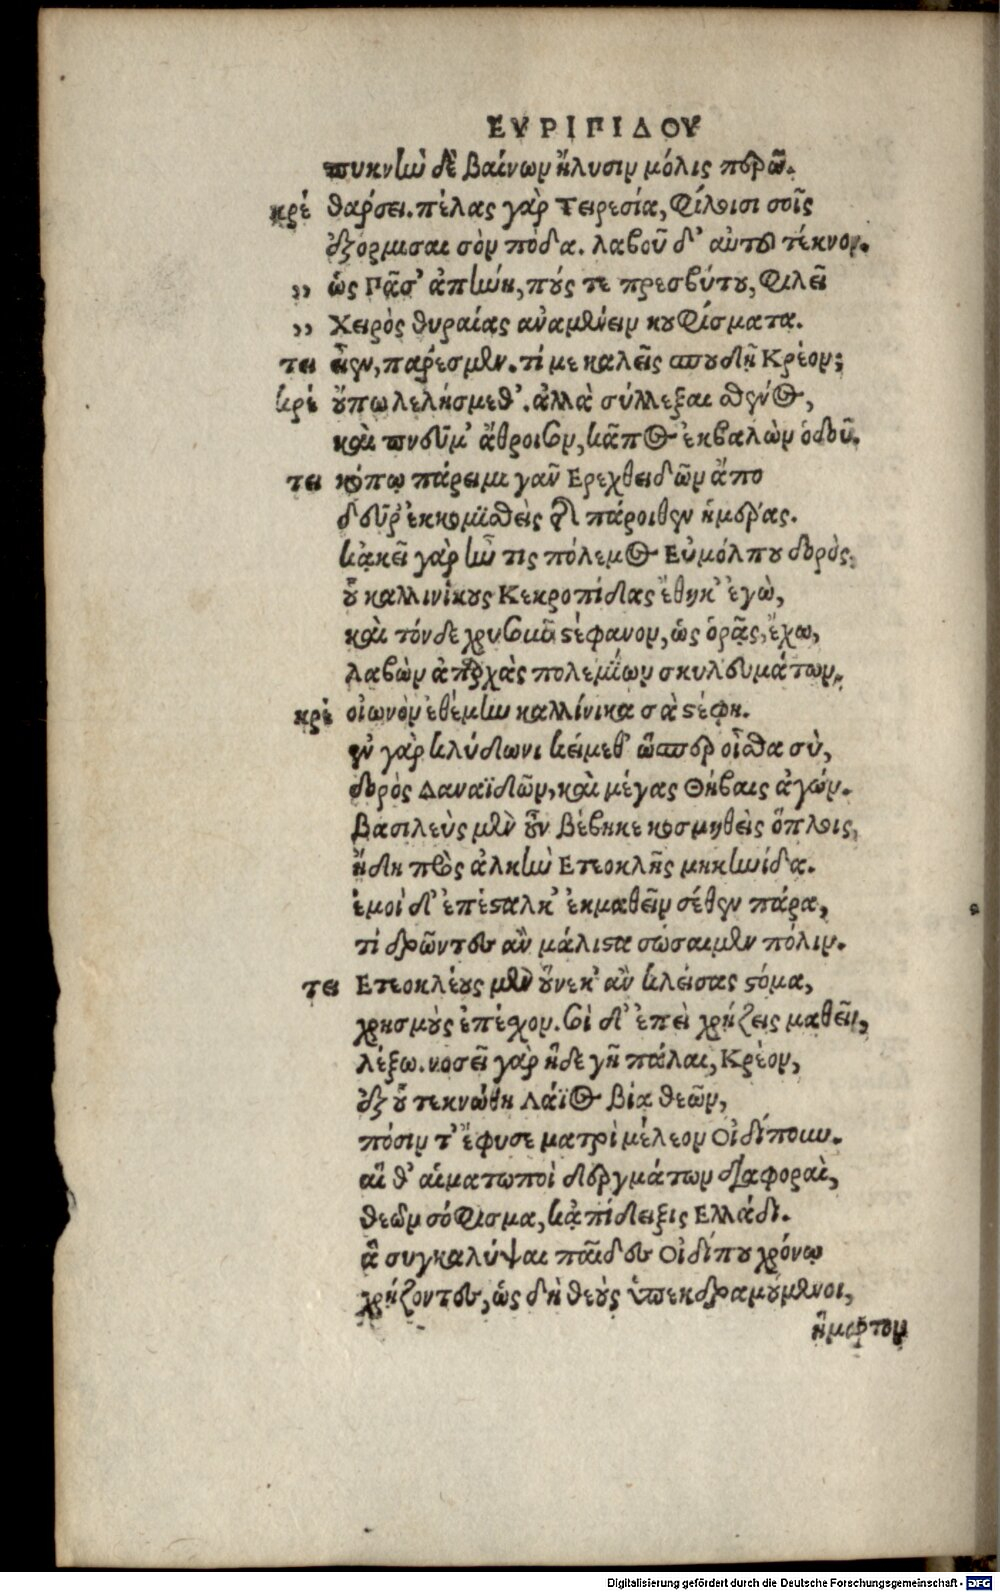 ΕΥΡΙΠΙΔΟΥ
πυκνὴν δὲ βαίνων ἤλυσιν μόλις περῶ.
κρέ θάρσει. πέλας γὰρ Τειρεσία, φίλοισι σοῖς
ἐξορμισαι σὸν πόδα. λαβοῦ δ' αὐτοῦ τέκνον.
,, ὡς πᾶσ' ἀπήνη, πούς τε πρεσβύτου, φιλεῖ
,, Χειρὸς θυραίας ἀναμένειν κουφίσματα.
τει εἶεν, πάρεσμεν. τί με καλεῖς σπουδῇ Κρέον;
κρέ οὔπω λελήσμεθ'. ἀλλὰ σύλλεξαι σθένος,
καὶ πνεῦμ' ἄθροισον, κἆπος ἐκβαλὼν ὁδοῦ.
τει κόπῳ πάρειμι γοῦν Ερεχθειδῶν ἄπο
δεῦρ' ἐκκομισθεὶς τῆς πάροιθεν ἡμέρας.
κἀκεῖ γὰρ ἦν τις πόλεμος Εὐμόλπου δορὸς,
οὗ καλλινίκους Κεκροπίδας ἔθηκ' ἐγὼ,
καὶ τόνδε χρυσοῦν στέφανον, ὡς ὁρᾷς, ἔχω,
λαβὼν ἀπαρχὰς πολεμίων σκυλευμάτων.
κρέ οἰωνὸν ἐθέμην καλλίνικα σὰ στέφη.
ἐν γὰρ κλύδωνι κείμεθ' ὥσπερ οἶσθα σὺ,
δορὸς Δαναϊδῶν, καὶ μέγας Θήβαις ἀγών.
βασιλεὺς μὲν οὖν βέβηκε κοσμηθεὶς ὅπλοις,
ἤδη πρὸς ἀλκὴν Ετεοκλῆς μηκωίδα.
ἐμοὶ δ' ἐπέσταλκ' ἐκμαθεῖν σέθεν πάρα,
τί δρῶντες ἂν μάλιστα σώσαιμεν πόλιν.
τει Ετεοκλέους μὲν οὕνεκ' ἂν κλείσας στόμα,
χρησμοὺς ἐπέσχον. σοὶ δ' ἐπεὶ χρῄζεις μαθεῖν,
λέξω. νοσεῖ γὰρ ἥδε γῆ πάλαι, Κρέον,
ἐξ οὗ τεκνώθη Λάϊος βίᾳ θεῶν,
πόσιν τ' ἔφυσε ματρὶ μέλεον Οἰδίπουν.
αἵ θ' αἱματωποὶ δεργμάτων διαφοραὶ,
θεῶν σόφισμα, κἀπίδειξις Ελλάδι.
ἃ συγκαλύψαι παῖδες Οἰδίπου χρόνῳ
χρῄζοντες, ὡς δὴ θεοὺς ὑπεκδραμούμενοι,
ἥμαρτον
Digitalisierung gefördert durch die Deutsche Forschungsgemeinschaft - DFG